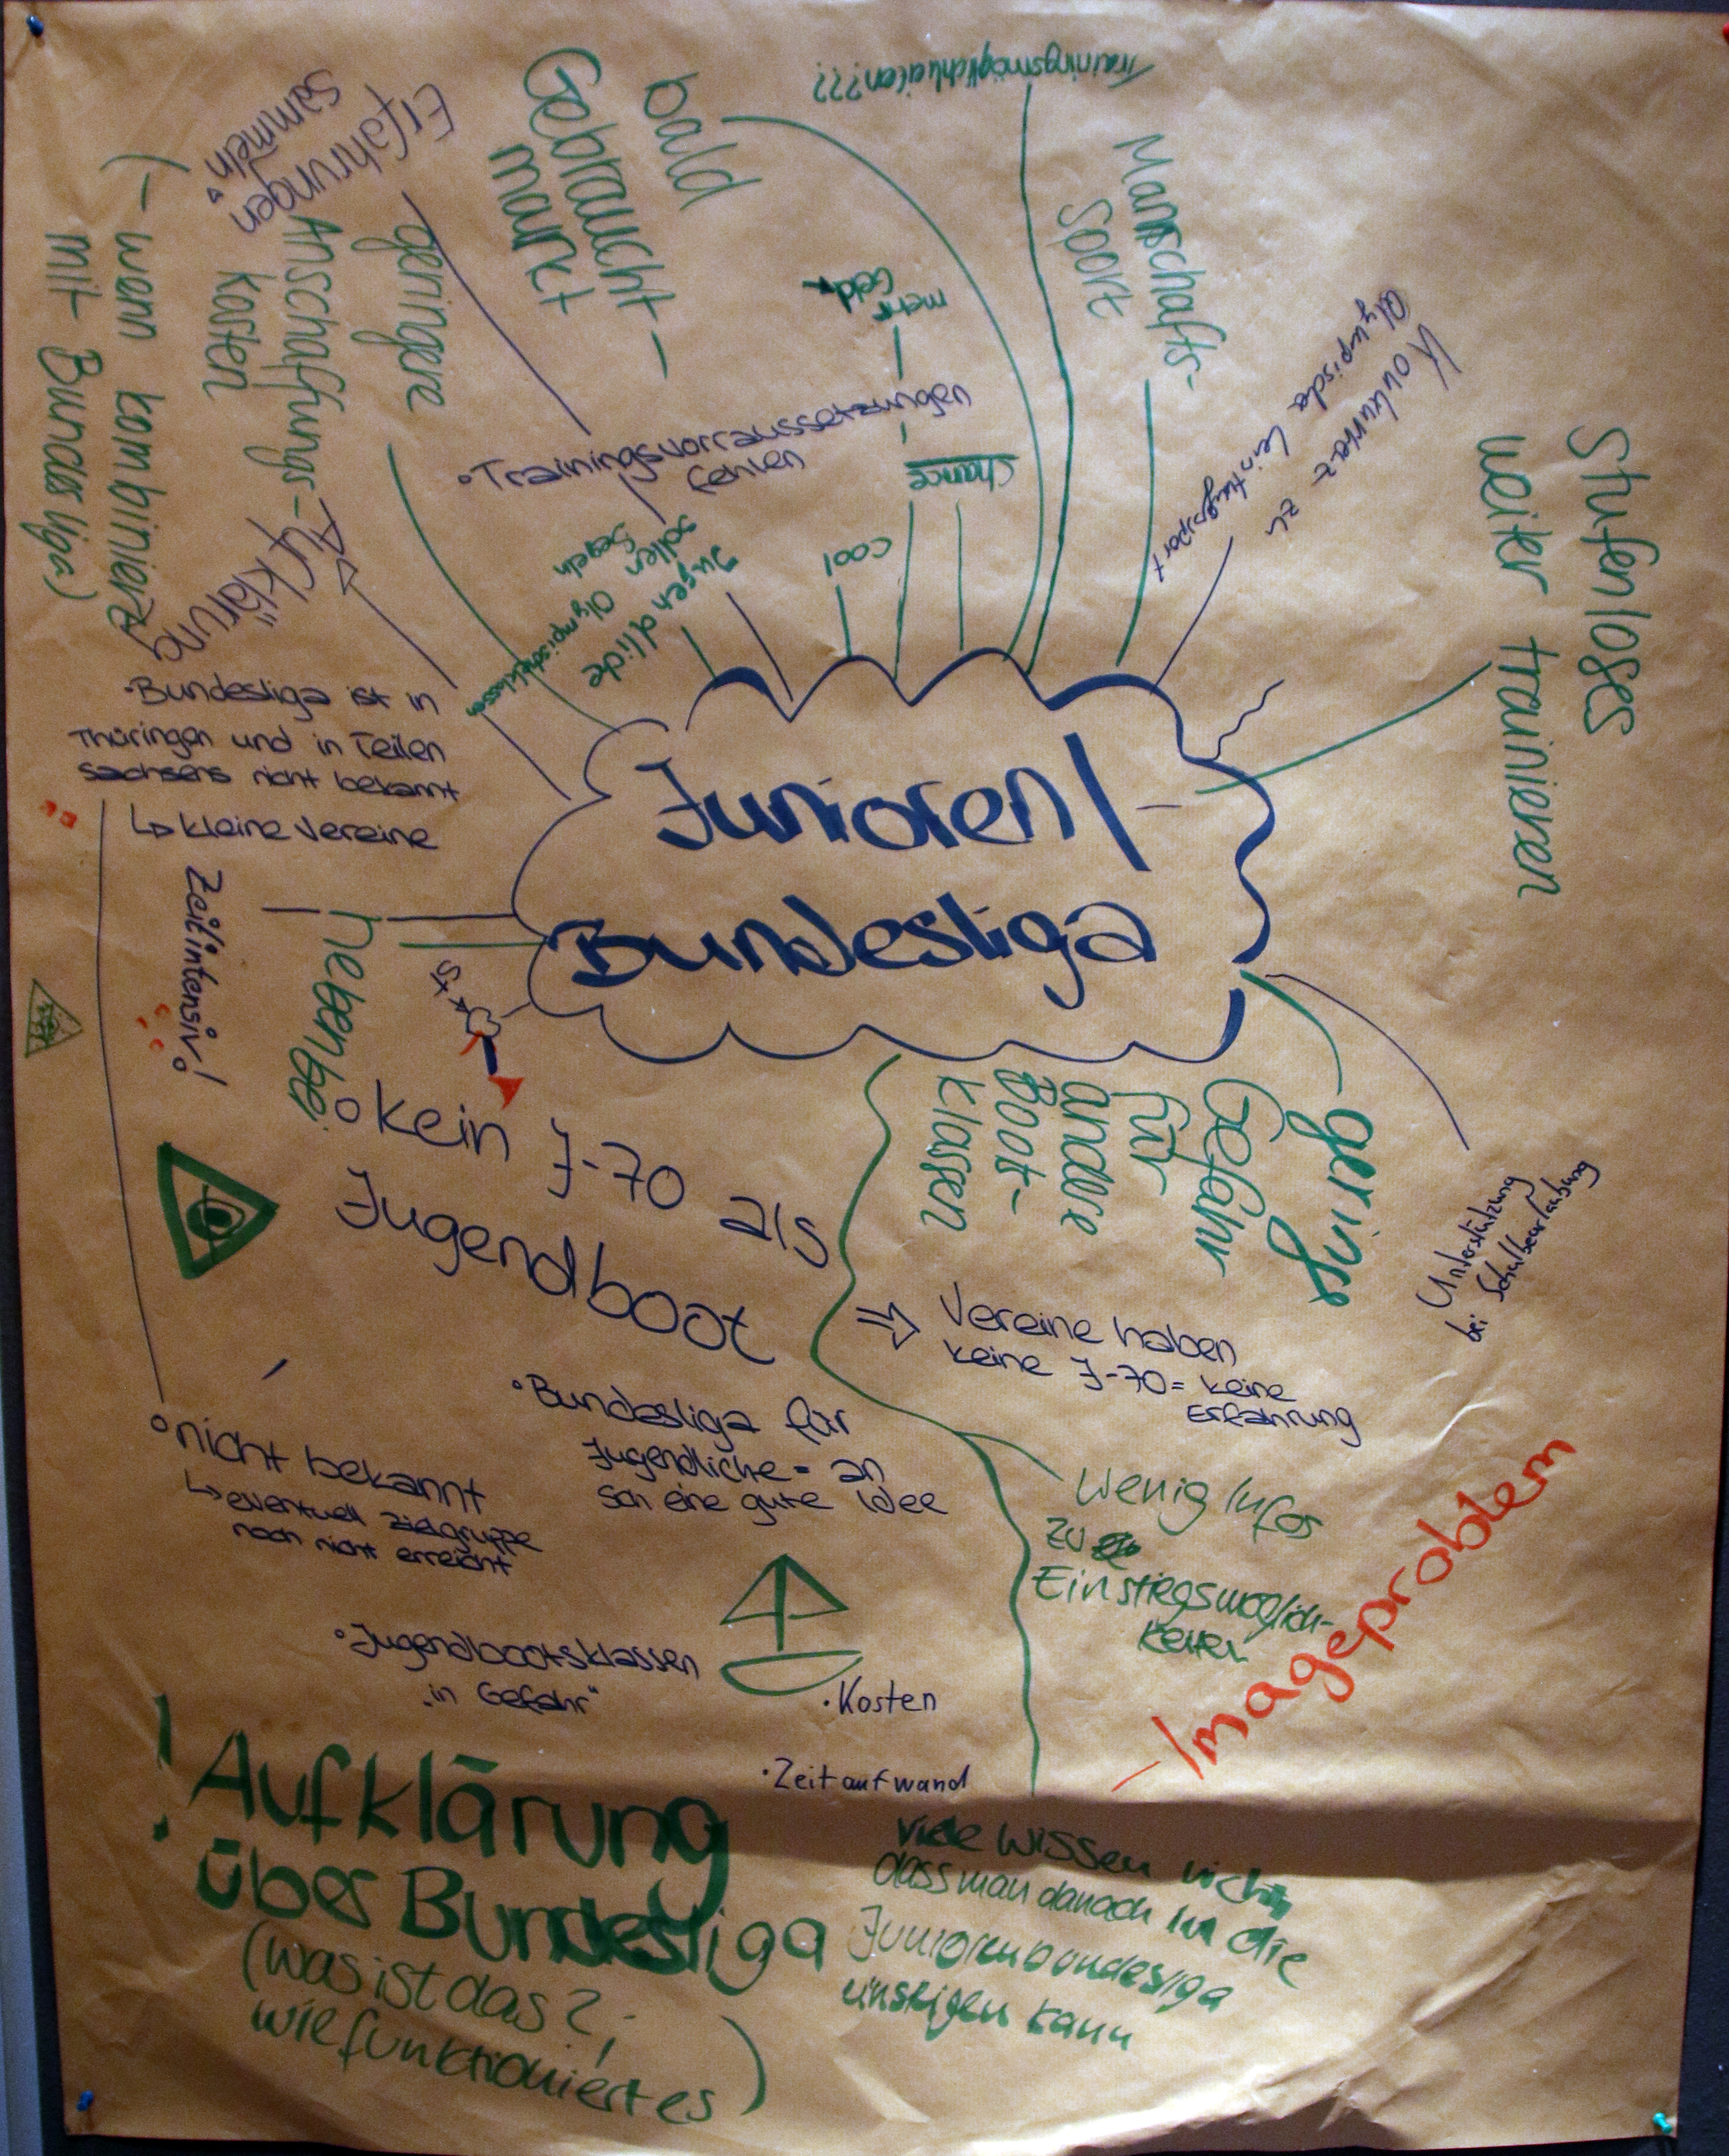 Trainingsmöglichkeiten???
Erfahrungen
sammeln"
bald
Gebraucht-
markt
Mannschafts-
Sport
mehr
Geld
geringere
Anschaffungs-
Kosten
(- wenn kombiniert
mit Bundesliga)
Konkurrenz zu
olympische Leistungssport
Stufenloses
weiter trainieren
•Trainingsvorraussetzungen
fehlen
Chance
cool
Jugendliche
sollen Olympischeklassen
Segeln
"Aufklärung"
•Bundesliga ist in
Thüringen und in Teilen
Sachsens nicht bekannt
↳ kleine Vereine
Junioren/
Bundesliga
Zeitintensiv!
nebenbei
geringe
Gefahr
für
andere
Boot-
klassen
Unterstützung
bei Schulbeurlaubung
○ kein J-70 als
Jugendboot
⇒ Vereine haben
keine J-70 = keine
Erfahrung
•Bundesliga für
Jugendliche = an
sich eine gute Idee
○ nicht bekannt
↳ eventuell Zielgruppe
noch nicht erreicht
Wenig Infos
zu
Einstiegsmöglich-
keiten
- Imageproblem
•Jugendbootsklassen
"in Gefahr"
•Kosten
•Zeitaufwand
! Aufklärung
über Bundesliga
(was ist das?;
wie funktioniert es)
viele wissen nicht,
dass man danach in die
Juniorenbundesliga
einsteigen kann